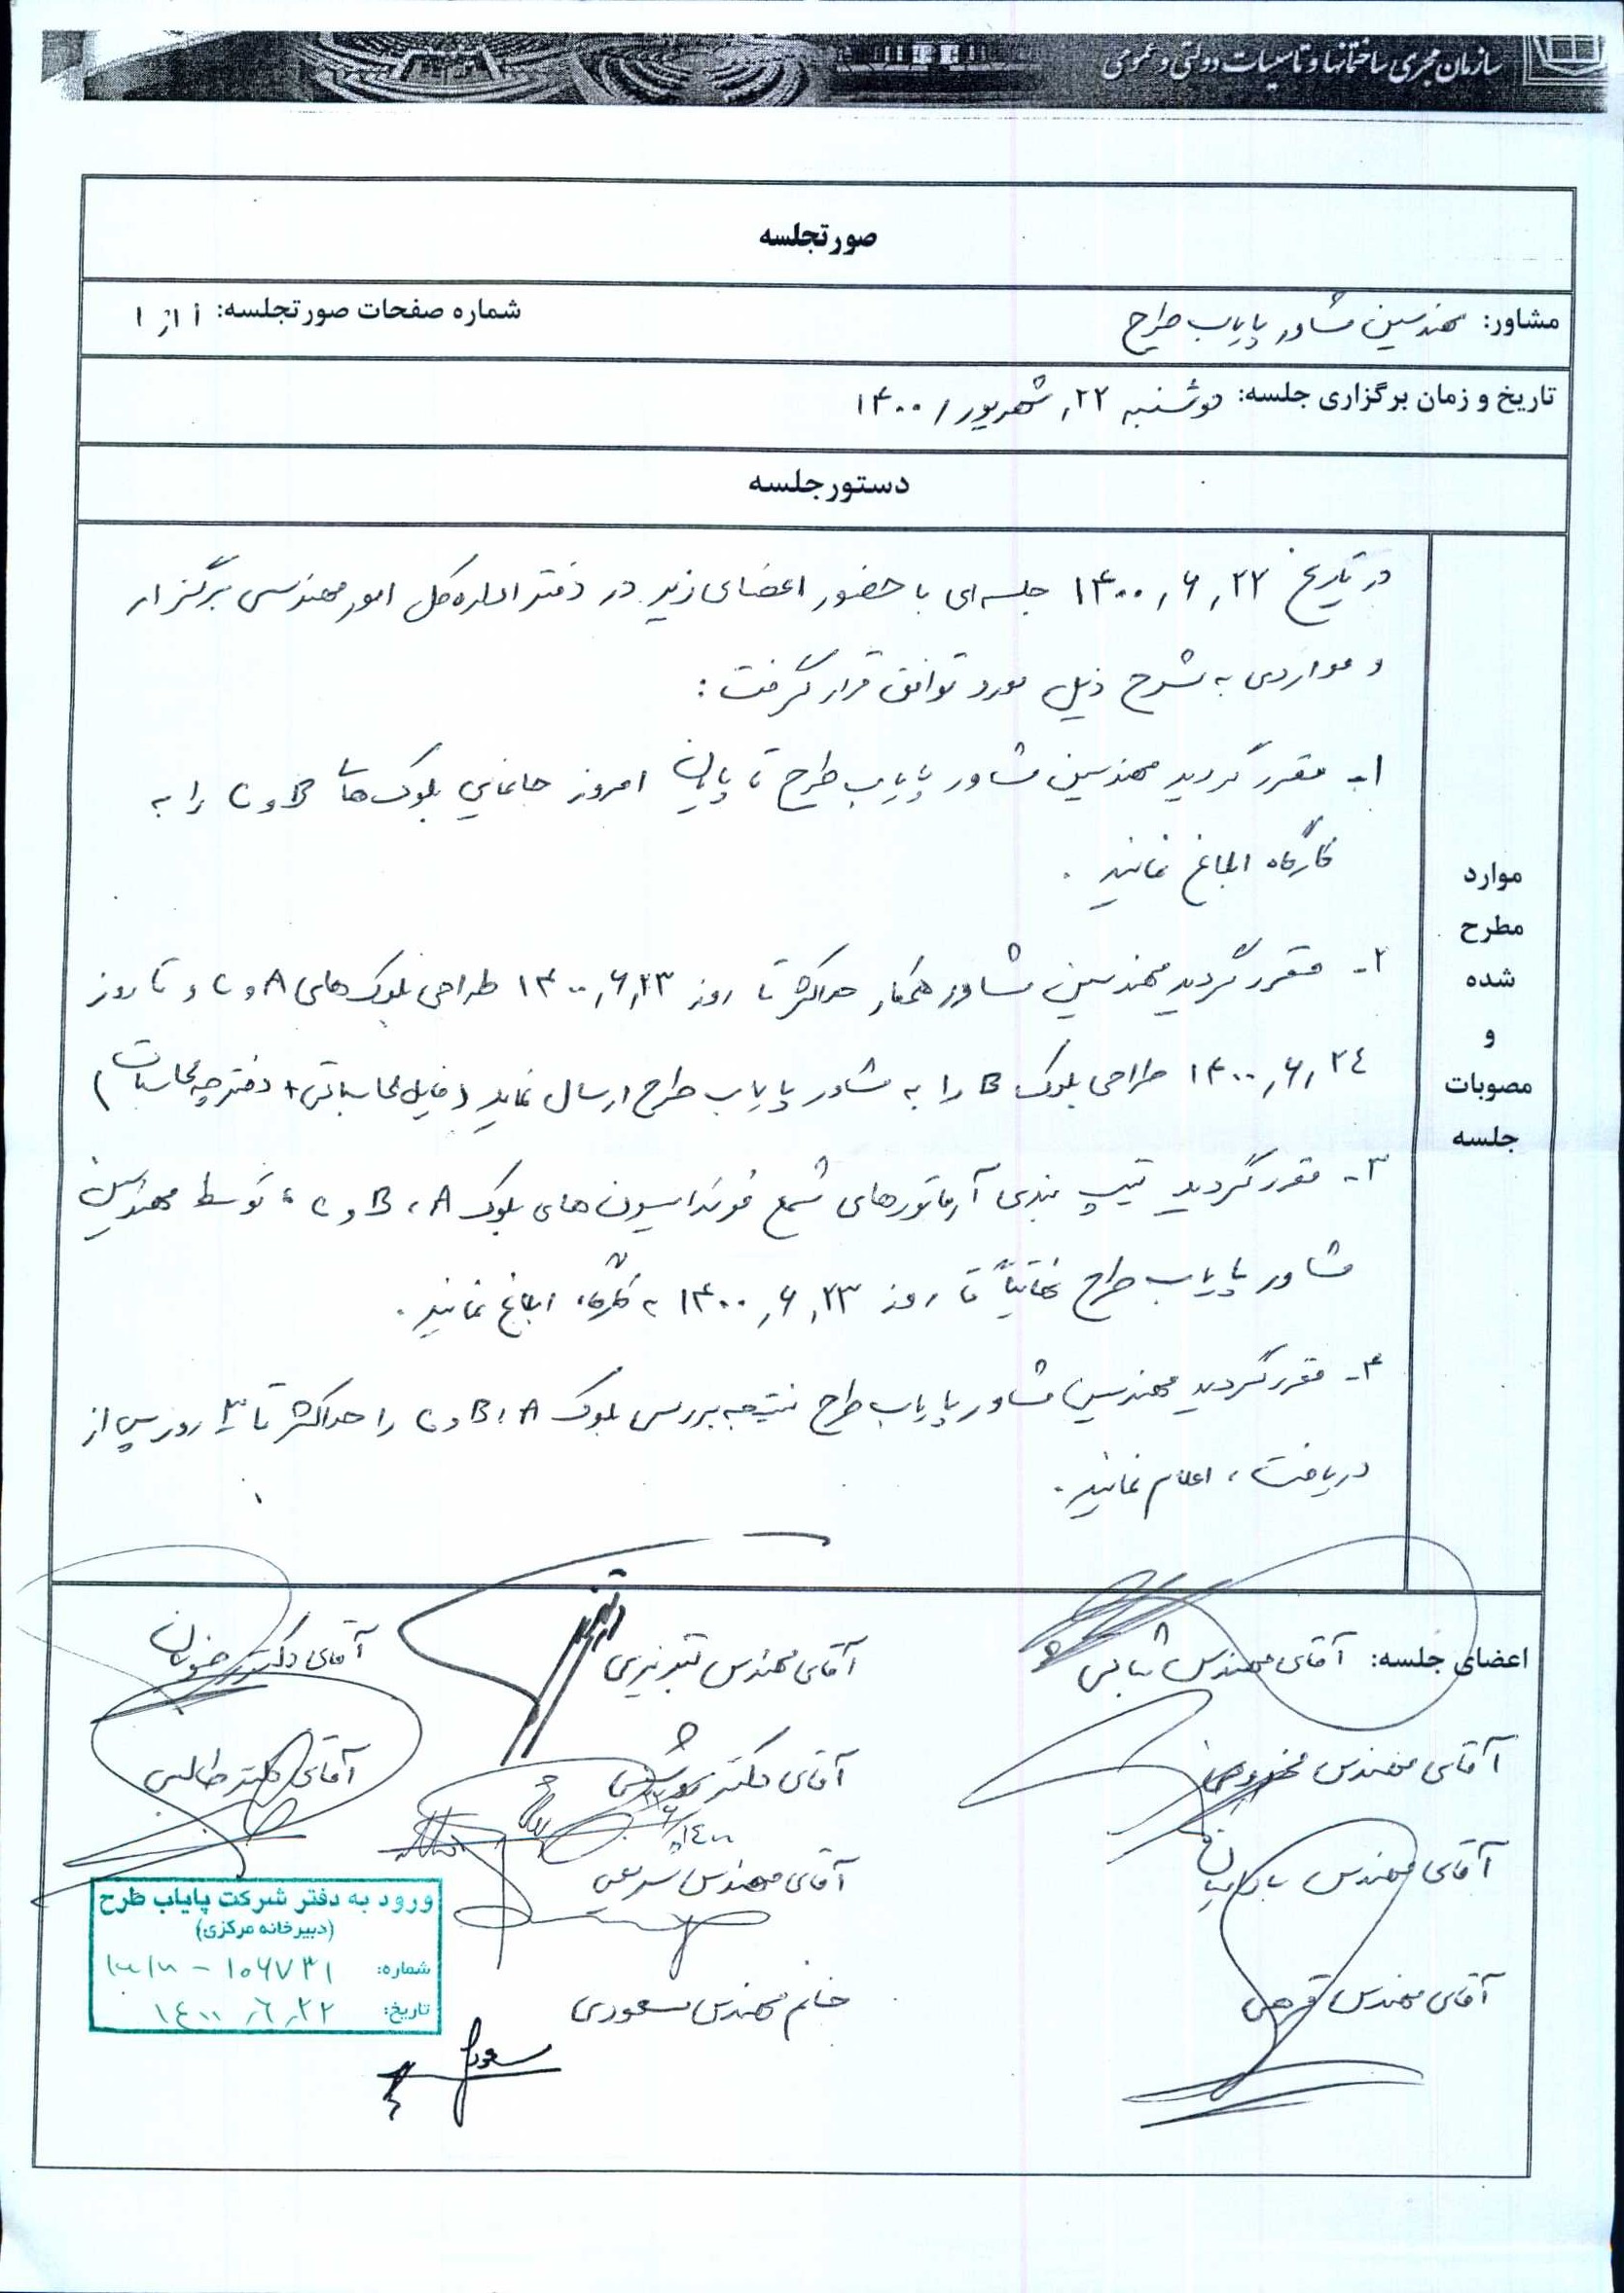 سازمان مجری ساختمانها و تاسیسات دولتی و عمومی
صورتجلسه
مشاور: مهندسین مشاور پایاب طرح
شماره صفحات صورتجلسه: ۱ از ۱
تاریخ و زمان برگزاری جلسه: دوشنبه ۲۲, شهریور / ۱۴۰۰
دستورجلسه
موارد
مطرح
شده
و
مصوبات
جلسه
در تاریخ ۱۴۰۰,۶,۲۲ جلسه‌ای با حضور اعضای زیر در دفتر اداره کل امور مهندسی برگزار
و مواردی به شرح ذیل مورد توافق قرار گرفت :
۱- مقرر گردید مهندسین مشاور پایاب طرح تا پایان امروز جانمایی بلوک‌های B و C را به
کارگاه ابلاغ نمایند .
۲- مقرر گردید مهندسین مشاور همکار حداکثر تا روز ۱۴۰۰,۶,۲۳ طراحی بلوک‌های A و C و تا روز
۱۴۰۰,۶,۲۴ طراحی بلوک B را به مشاور پایاب طرح ارسال نماید (فایل محاسباتی + دفترچه محاسبات)
۳- مقرر گردید تیپ بندی آرماتورهای شمع فونداسیون‌های بلوک A ، B و C ، توسط مهندسین
مشاور پایاب طرح نهایتاً تا روز ۱۴۰۰,۶,۲۳ به کارگاه ابلاغ نمایند .
۴- مقرر گردید مهندسین مشاور پایاب طرح نتیجه بررسی بلوک A ، B و C را حداکثر تا ۳ روز پس از
دریافت ، اعلام نمایند .
اعضای جلسه: آقای مهندس آقای مهندس تبریزی آقای دکتر رضوانیان
آقای مهندس آقای دکتر آقای دکتر طالبی
۱۴۰۰/۶/
آقای مهندس آقای مهندس شریفی
آقای مهندس آقای مهندس
خانم مهندس مسعودی
ورود به دفتر شرکت پایاب طرح
(دبیرخانه مرکزی)
شماره: ۱۰۶۷۳۱
تاریخ: ۱۴۰۰,۶,۲۲